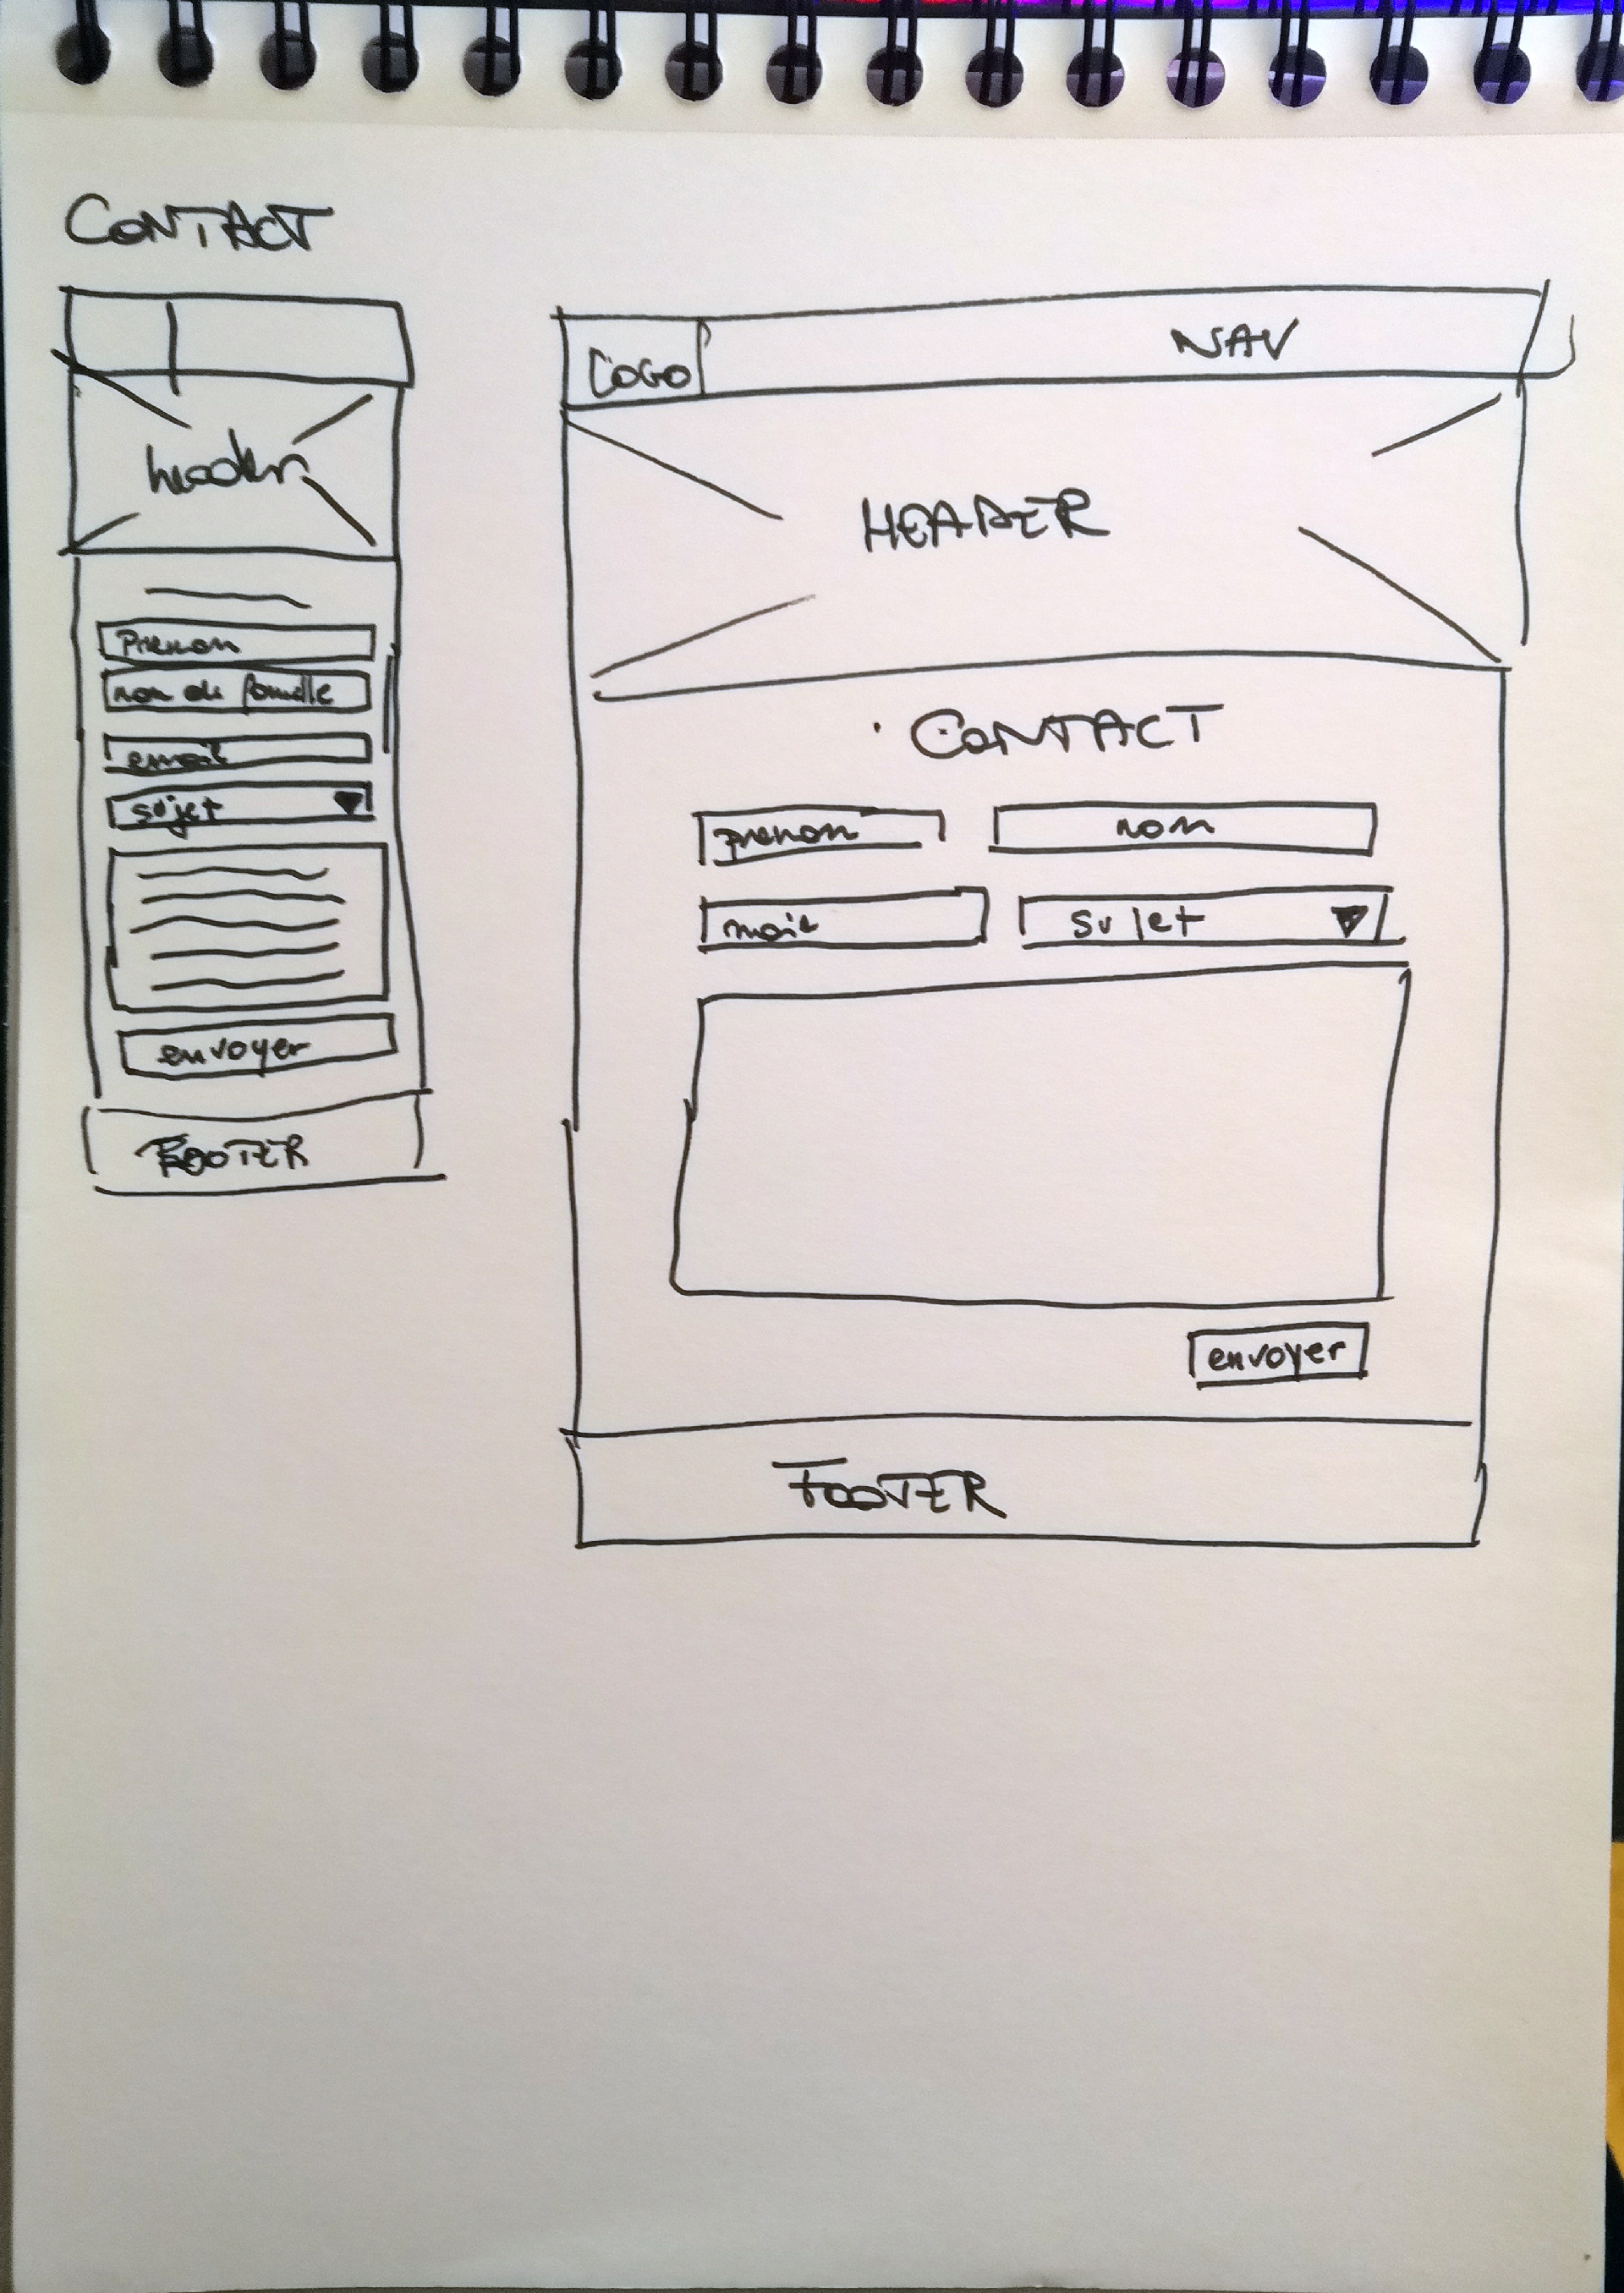 CONTACT
header
Prenom
nom de famille
email
sujet
envoyer
FOOTER
LOGO
NAV
HEADER
CONTACT
prenom
nom
mail
sujet
envoyer
FOOTER